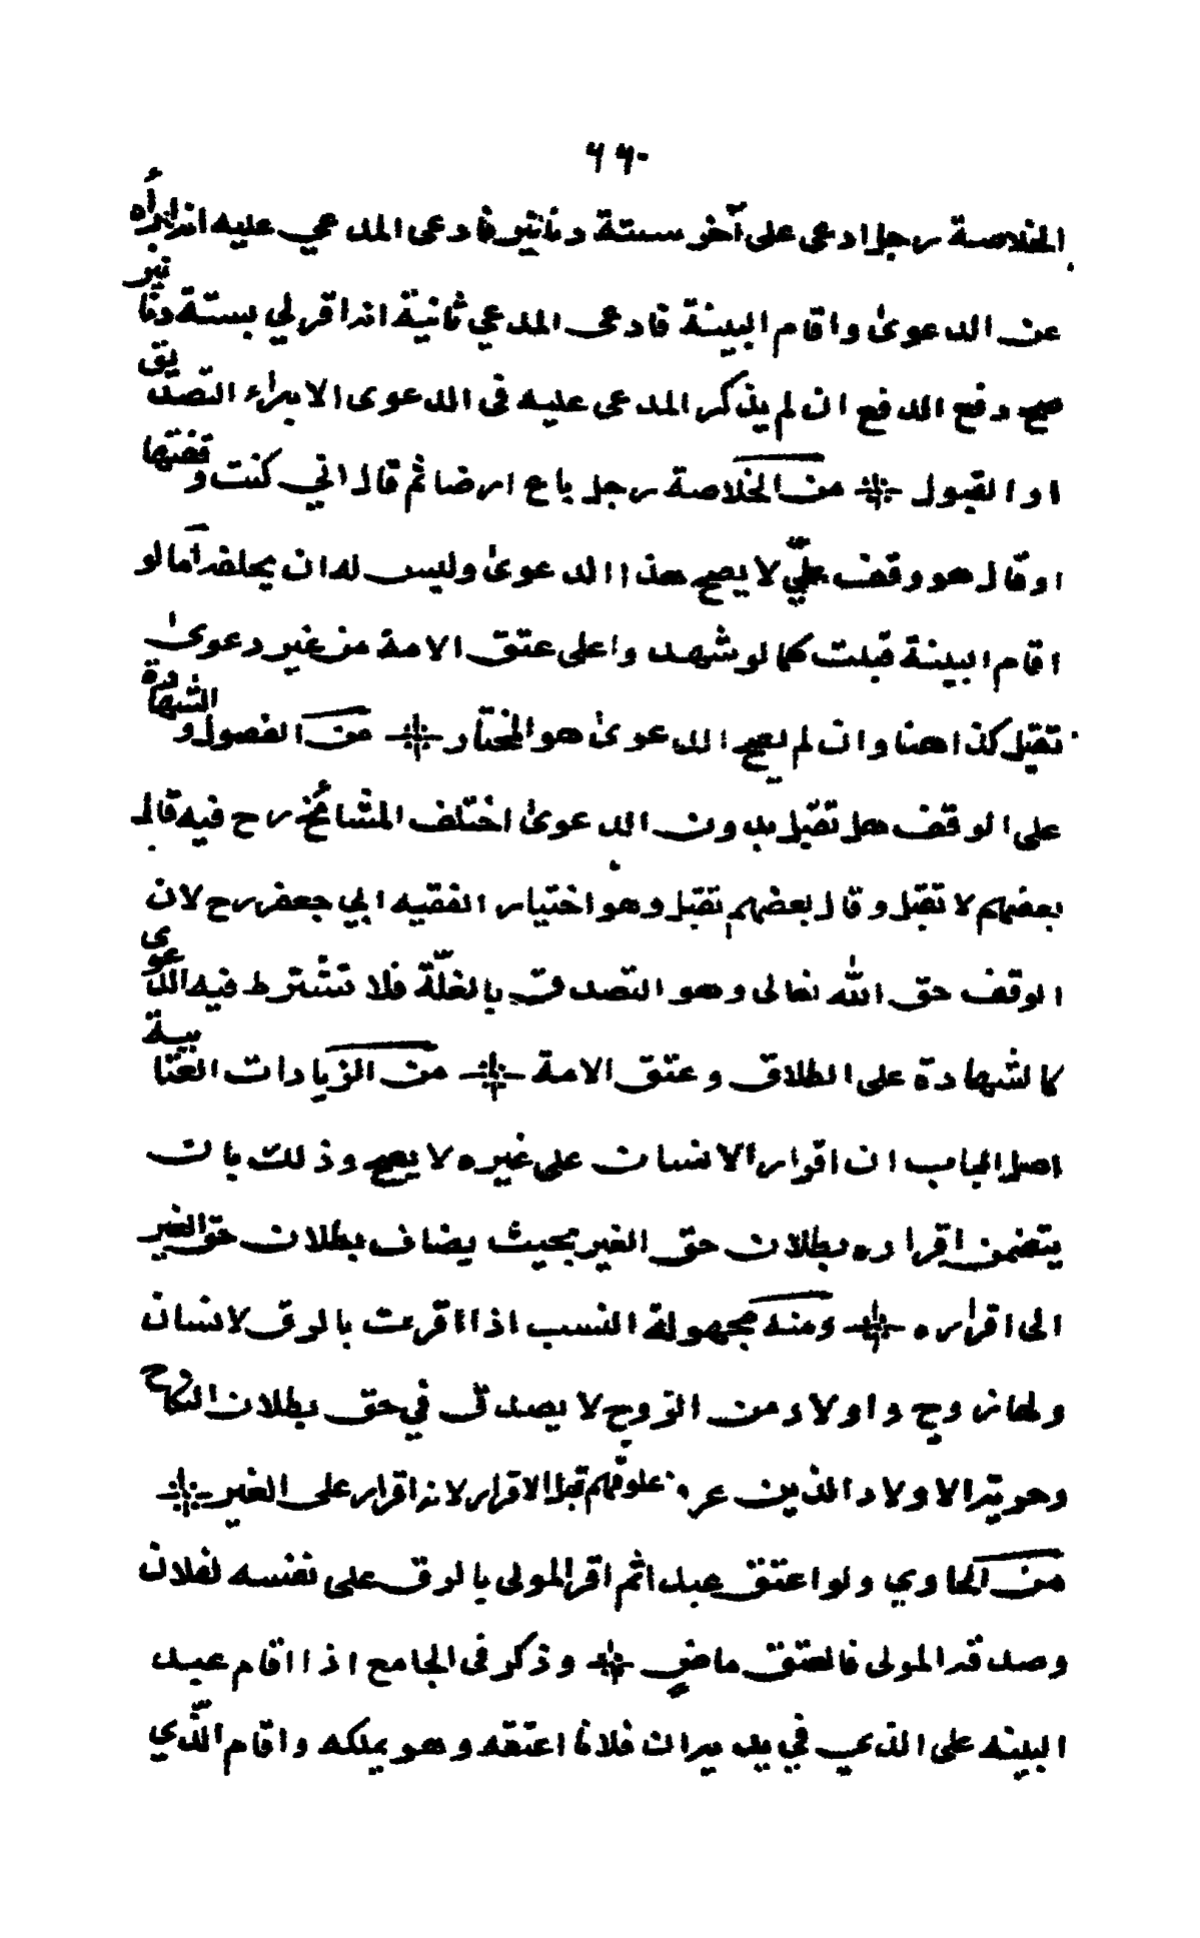 ٦٦٠
الخلاصة رجل ادعى على آخر ستة دنانير فادعى المدعي عليه انه ابرأه
عن الدعوىٰ واقام البينة فادعى المدعي ثانية انه اقر لي بستة دنانير
صح دفع الدفع ان لم يذكر المدعى عليه فى الدعوى الابراء التصديق
او القبول من الخلاصة رجل باع ارضا ثم قال اني كنت وقفتها
او قال هو وقف عليّ لا يصح هذا الدعوىٰ وليس له ان يحلفه آما لو
اقام البينة قبلت كما لو شهدوا على عتق الامة من غير دعوىٰ
تقبل كذا هنا وان لم يصح الدعوىٰ هو المختار من الفصول والشهادة
على الوقف هل تقبل بدون الدعوىٰ اختلف المشائخ رح فيه قال
بعضهم لا تقبل وقال بعضهم تقبل وهو اختيار الفقيه ابي جعفر رح لان
الوقف حق الله تعالى وهو التصدق بالغلّة فلا تشترط فيه الدعوى
كالشهادة على الطلاق وعتق الامة من الزيادات العتابية
اصل الباب ان اقرار الانسان على غيره لا يصح وذلك بان
يتضمن اقراره بطلان حق الغير بحيث يضاف بطلان حق الغير
الى اقراره ومنه مجهولة النسب اذا اقرت بالرق لانسان
ولها زوج واولاد من الزوج لا يصدق في حق بطلان النكاح
وحرية الاولاد الذين عرف علوقهم قبل الاقرار لانه اقرار على الغير
من الحاوي ولو اعتق عبدا ثم اقر المولى بالرق على نفسه لفلان
وصدقه المولى فالعتق ماضٍ وذكر فى الجامع اذا اقام عبد
البينه على الذي في يديه ان فلانا اعتقه وهو يملكه واقام الّذي